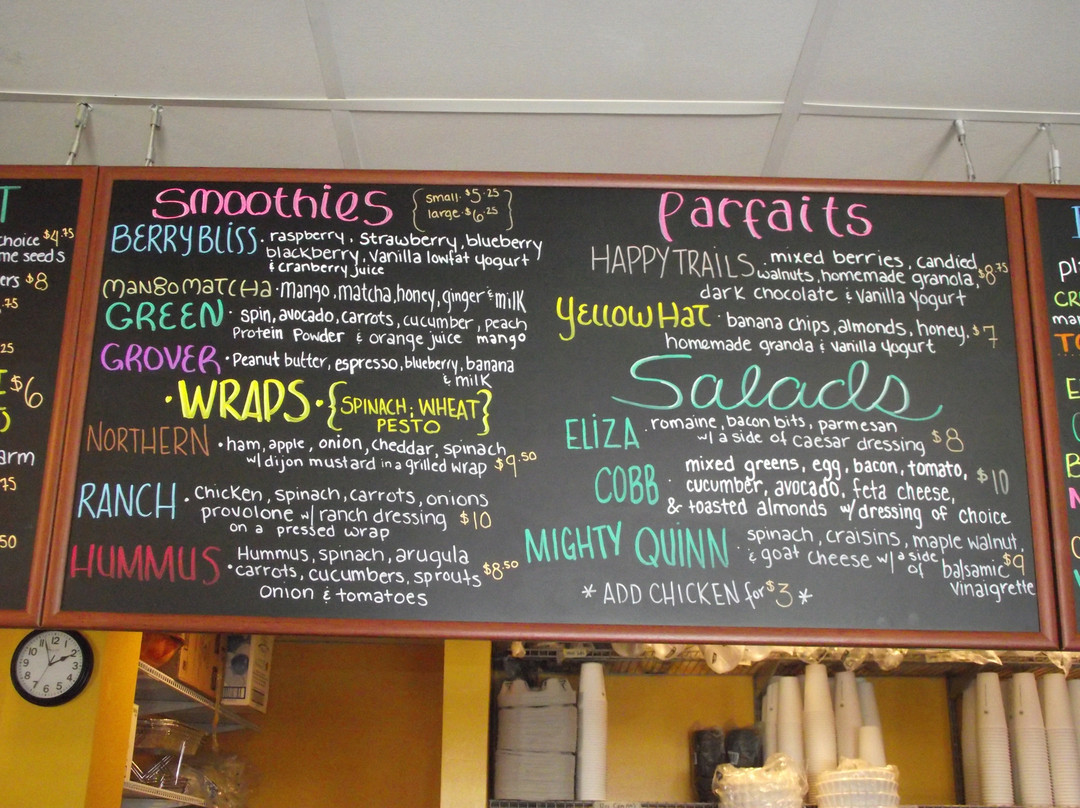 T
choice $4.75
me seeds
ers $8
.75
25
$6
arm
75
50
Smoothies
{small · $5.25
large · $6.25}
BERRY BLISS · raspberry, strawberry, blueberry
blackberry, vanilla lowfat yogurt
& cranberry juice
MANGO MATCHA · mango, matcha, honey, ginger & milk
GREEN · spin, avocado, carrots, cucumber, peach
Protein Powder & orange juice mango
GROVER · Peanut butter, espresso, blueberry, banana
& milk
· WRAPS · {SPINACH, WHEAT
PESTO}
NORTHERN · ham, apple, onion, cheddar, spinach
w/ dijon mustard in a grilled wrap $9.50
RANCH · chicken, spinach, carrots, onions
provolone w/ ranch dressing $10
on a pressed wrap
HUMMUS · Hummus, spinach, arugula
carrots, cucumbers, sprouts $8.50
onion & tomatoes
Parfaits
HAPPY TRAILS · mixed berries, candied
walnuts, homemade granola, $8.75
dark chocolate & vanilla yogurt
Yellow Hat · banana chips, almonds, honey, $7
homemade granola & vanilla yogurt
Salads
ELIZA · romaine, bacon bits, parmesan
w/ a side of caesar dressing $8
COBB · mixed greens, egg, bacon, tomato, $10
cucumber, avocado, feta cheese,
& toasted almonds w/ dressing of choice
MIGHTY QUINN · spinach, craisins, maple walnut,
& goat cheese w/ a side of balsamic $9
vinaigrette
* ADD CHICKEN for $3 *
pl
CR
man
TO
E
B
12
1
2
3
4
5
6
7
8
9
10
11